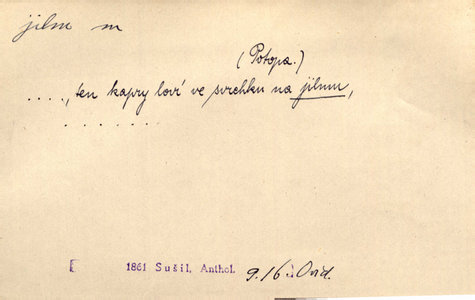 jilm m
(Potopa.)
...., ten kapry loví ve svrchku na jilmu,
.......
1861 Sušil, Anthol. 9.16 Ovid.